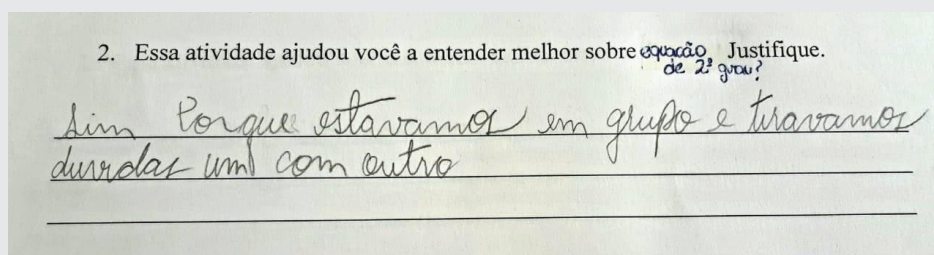 2. Essa atividade ajudou você a entender melhor sobre equação Justifique.
de 2º grau?
Sim Porque estavamos em grupo e tiravamos
duvidas um com outro